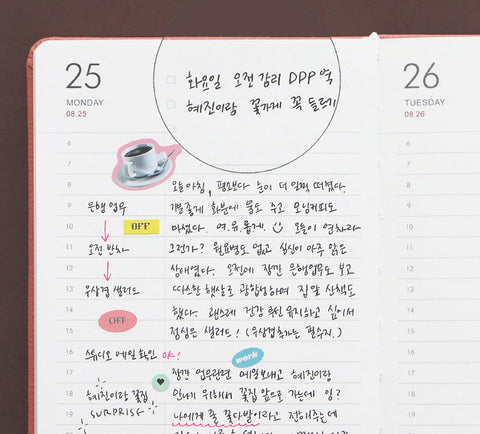 25
MONDAY
08.25
화요일 오전 감리 DDP 역
혜진이랑 꽃가게 꼭 들릴기
26
TUESDAY
08.26
6
7
8
9
10
11
12
13
14
15
16
17
18
19
은행 업무
OFF
오전 반차
우삼겹 샐러드
OFF
스튜디오 메일 확인 OK!
혜진이랑 꽃집
SURPRISE
오늘 아침, 평소보다 눈이 더 일찍 떠졌다.
기분 좋게 화분에 물도 주고 모닝커피도
마셨다. 여.유.롭게. 오늘이 연차라
그런가? 월요병도 없고 심신이 아주 맑은
상태였다. 오전에 잠깐 은행업무도 보고
따스한 햇살로 광합성하며 집 앞 산책도
했다. 괜스레 건강 루틴 유지하고 싶어서
점심은 샐러드! (우삼겹추가는 필수지.)
work
잠깐 업무관련 메일보내고 혜진이랑
만나기 위해서 꽃집 앞으로 가는데 잉?
나에게 줄 꽃다발이라고 전해주는데